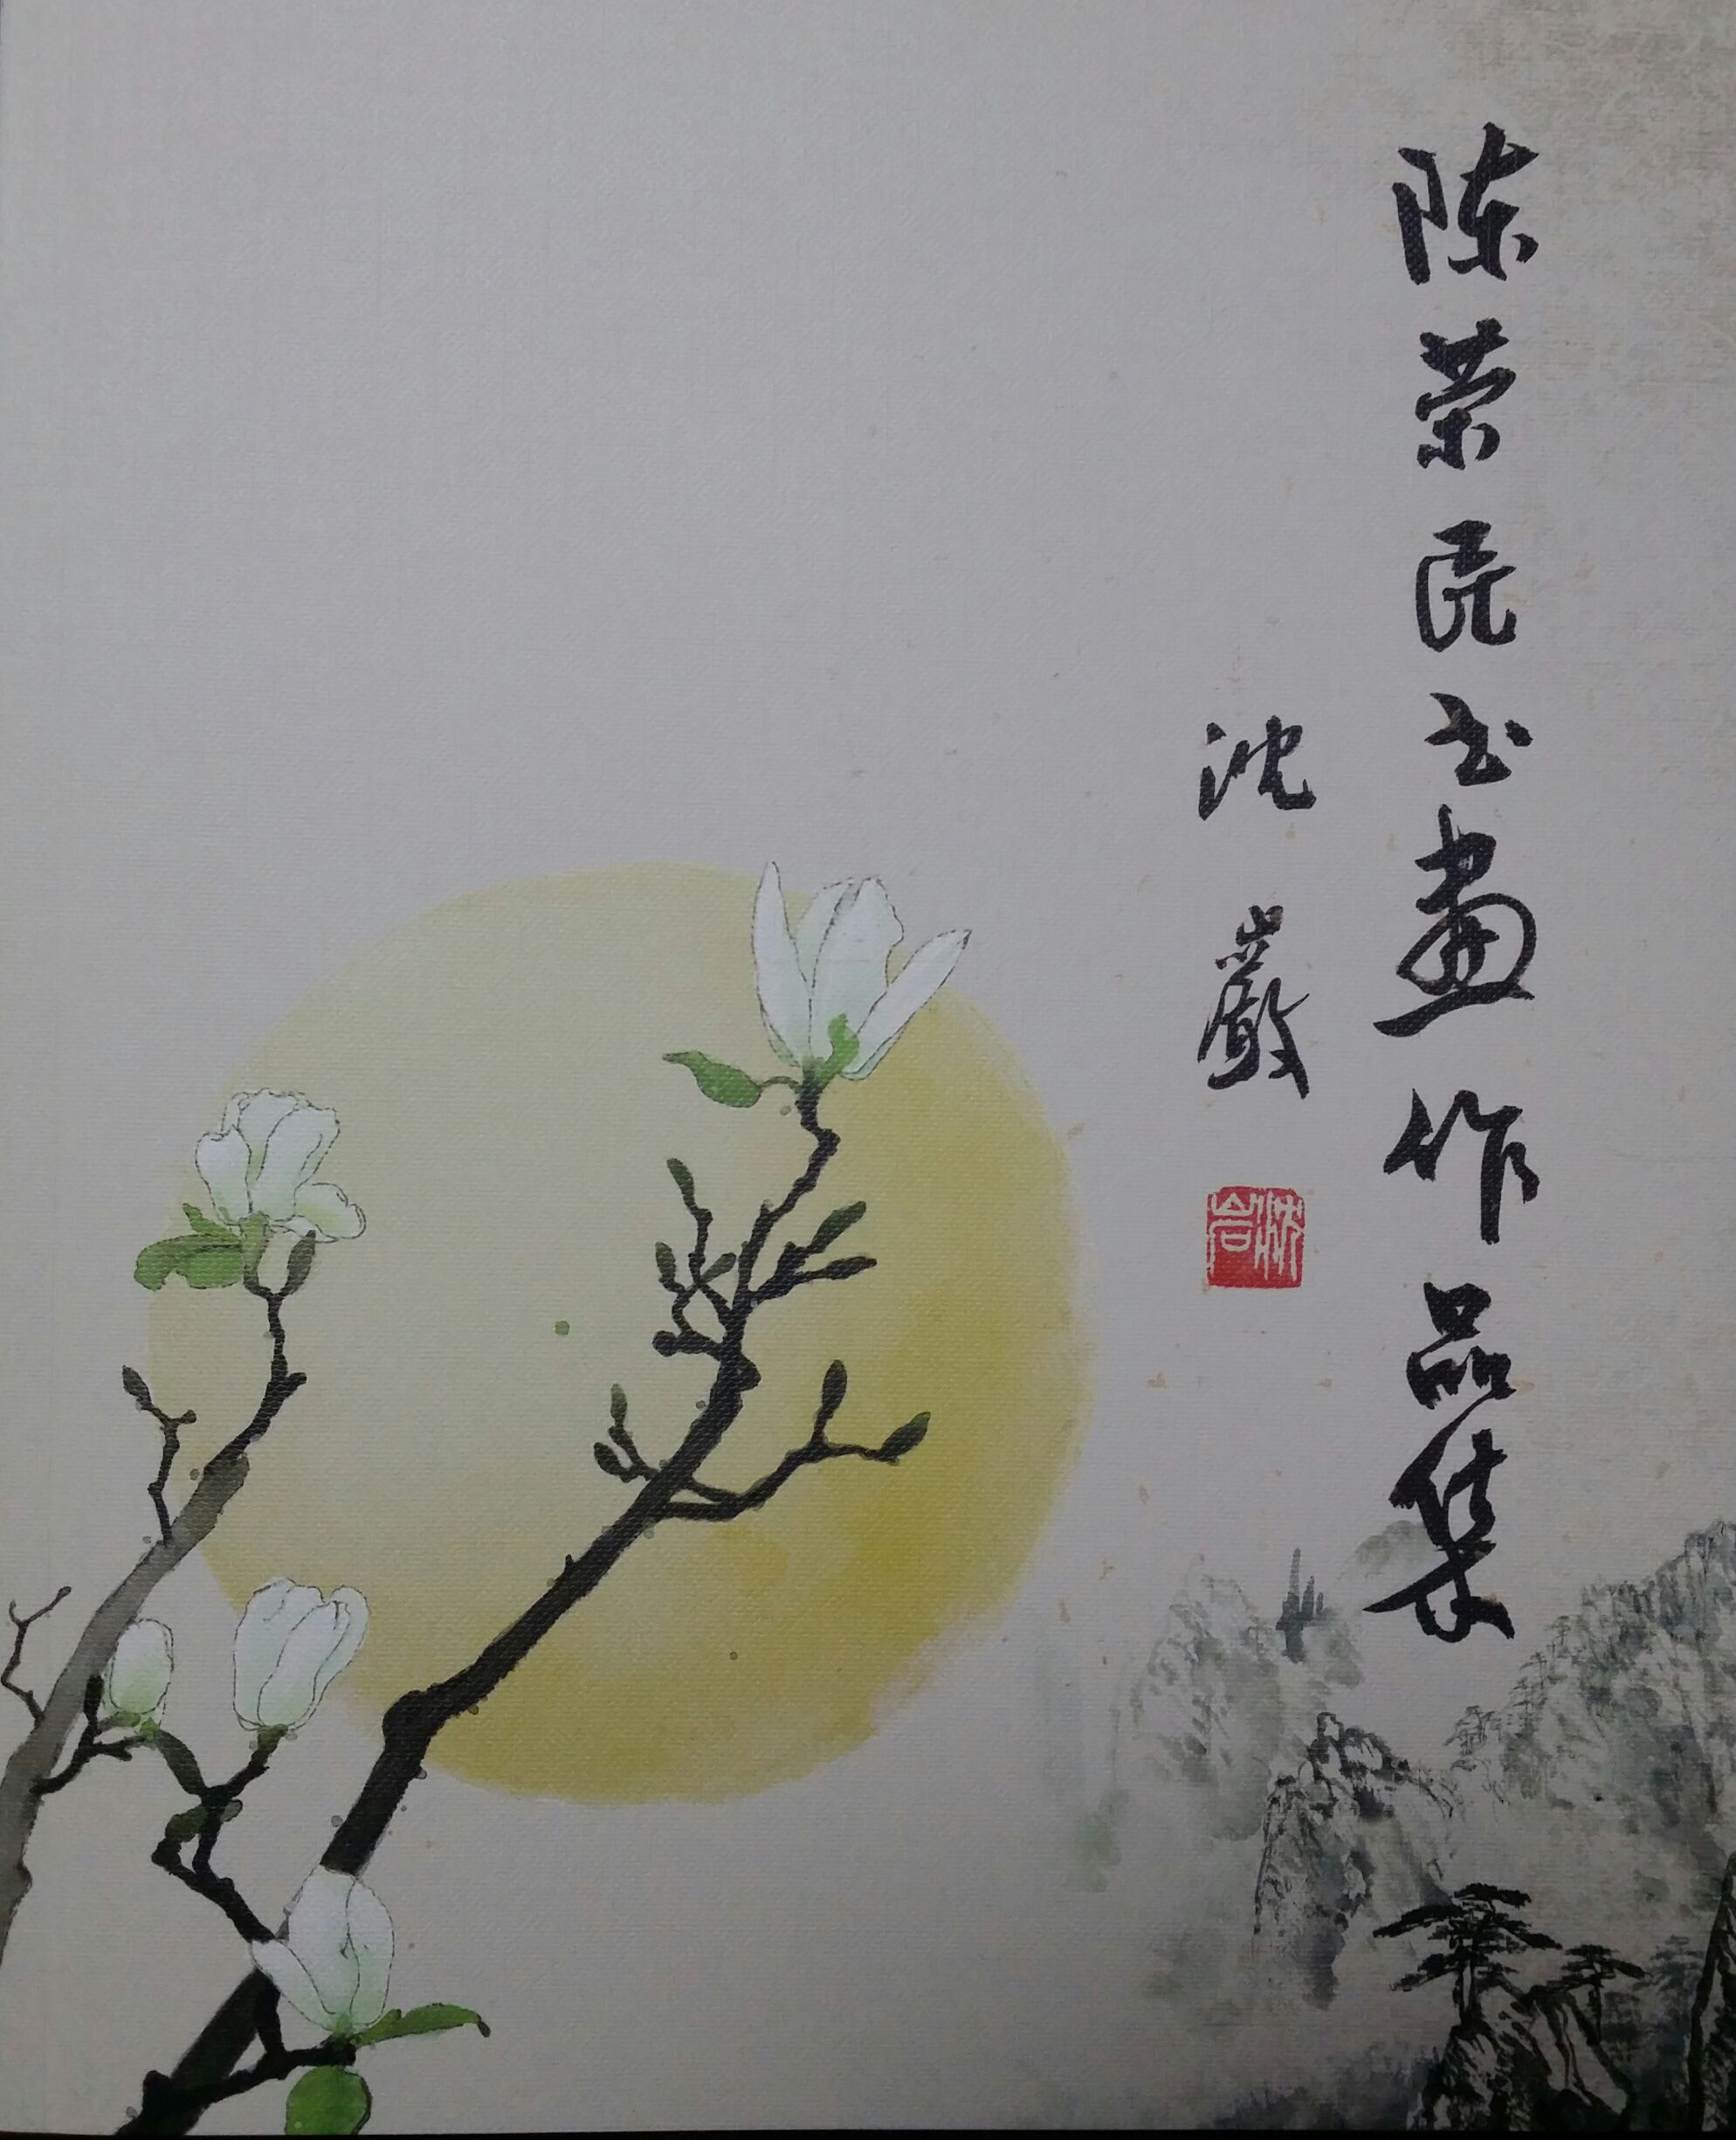 陈荣民书画作品集
沈巖